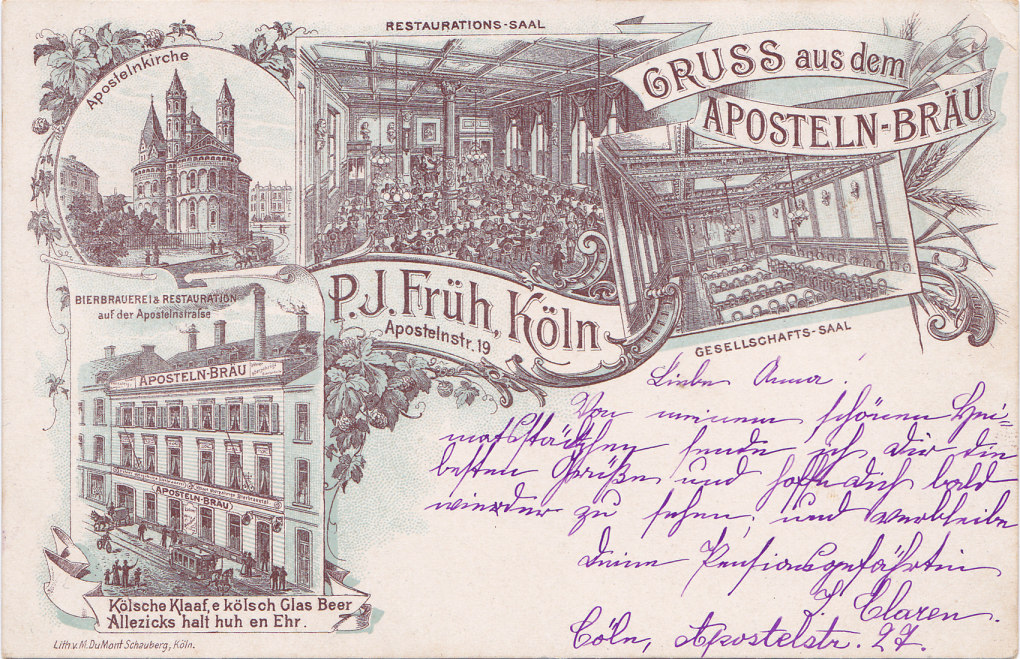 RESTAURATIONS-SAAL
GRUSS aus dem
APOSTELN-BRÄU
Apostelnkirche
P.J. Früh, Köln
Apostelnstr. 19
GESELLSCHAFTS-SAAL
BIERBRAUEREI & RESTAURATION
auf der Apostelnstraße
APOSTELN-BRÄU
APOSTELN-BRÄU
Kölsche Klaaf, e kölsch Glas Beer
Allezicks halt huh en Ehr.
Lith. v. M. DuMont Schauberg, Köln.
Liebe Anna!
Von meinem schönen Hei-
matsstädtchen sende ich Dir die
besten Grüße und hoffe dich bald
wieder zu sehen, und verbleibe
Deine Pensionsgefährtin
Claren.
Cöln, Apostelstr. 27.